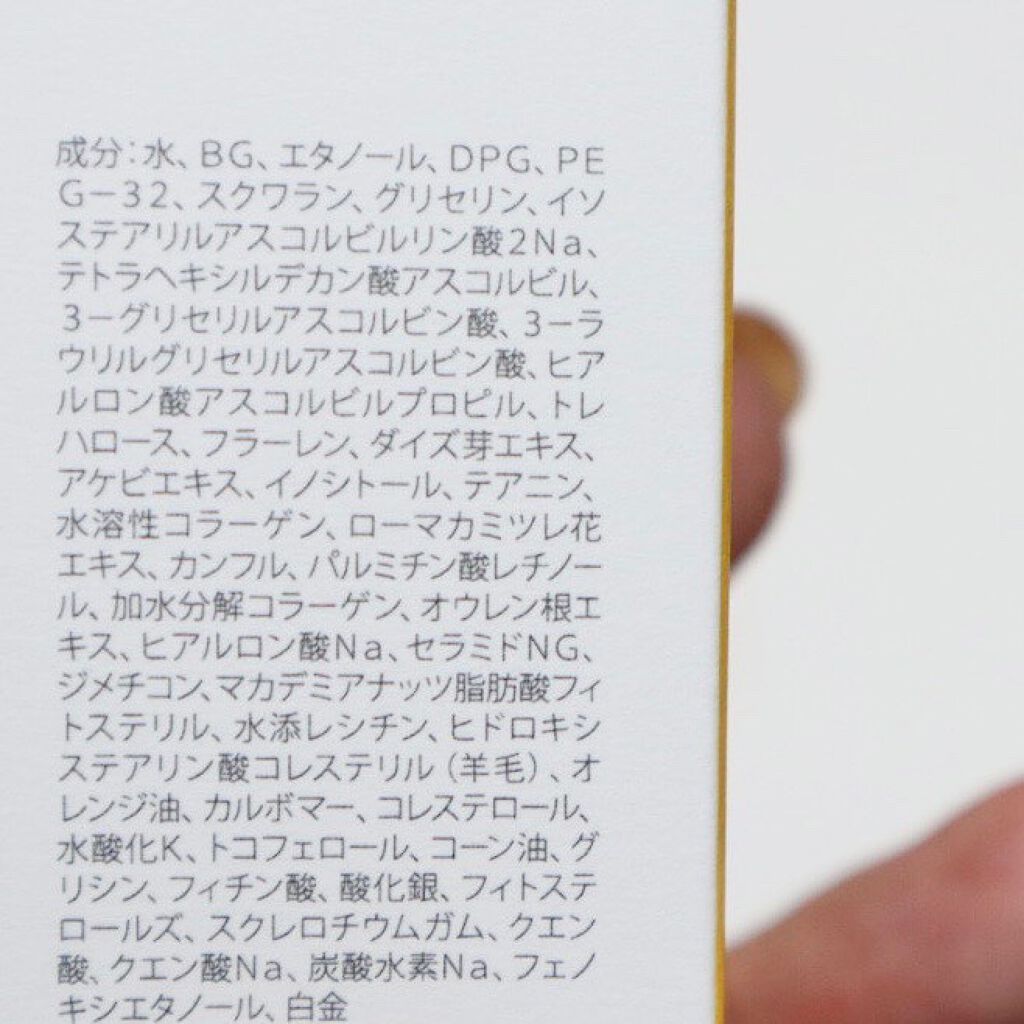 成分：水、BG、エタノール、DPG、PE
G－32、スクワラン、グリセリン、イソ
ステアリルアスコルビルリン酸2Na、
テトラヘキシルデカン酸アスコルビル、
3－グリセリルアスコルビン酸、3－ラ
ウリルグリセリルアスコルビン酸、ヒア
ルロン酸アスコルビルプロピル、トレ
ハロース、フラーレン、ダイズ芽エキス、
アケビエキス、イノシトール、テアニン、
水溶性コラーゲン、ローマカミツレ花
エキス、カンフル、パルミチン酸レチノー
ル、加水分解コラーゲン、オウレン根エ
キス、ヒアルロン酸Na、セラミドNG、
ジメチコン、マカデミアナッツ脂肪酸フィ
トステリル、水添レシチン、ヒドロキシ
ステアリン酸コレステリル（羊毛）、オ
レンジ油、カルボマー、コレステロール、
水酸化K、トコフェロール、コーン油、グ
リシン、フィチン酸、酸化銀、フィトステ
ロールズ、スクレロチウムガム、クエン
酸、クエン酸Na、炭酸水素Na、フェノ
キシエタノール、白金